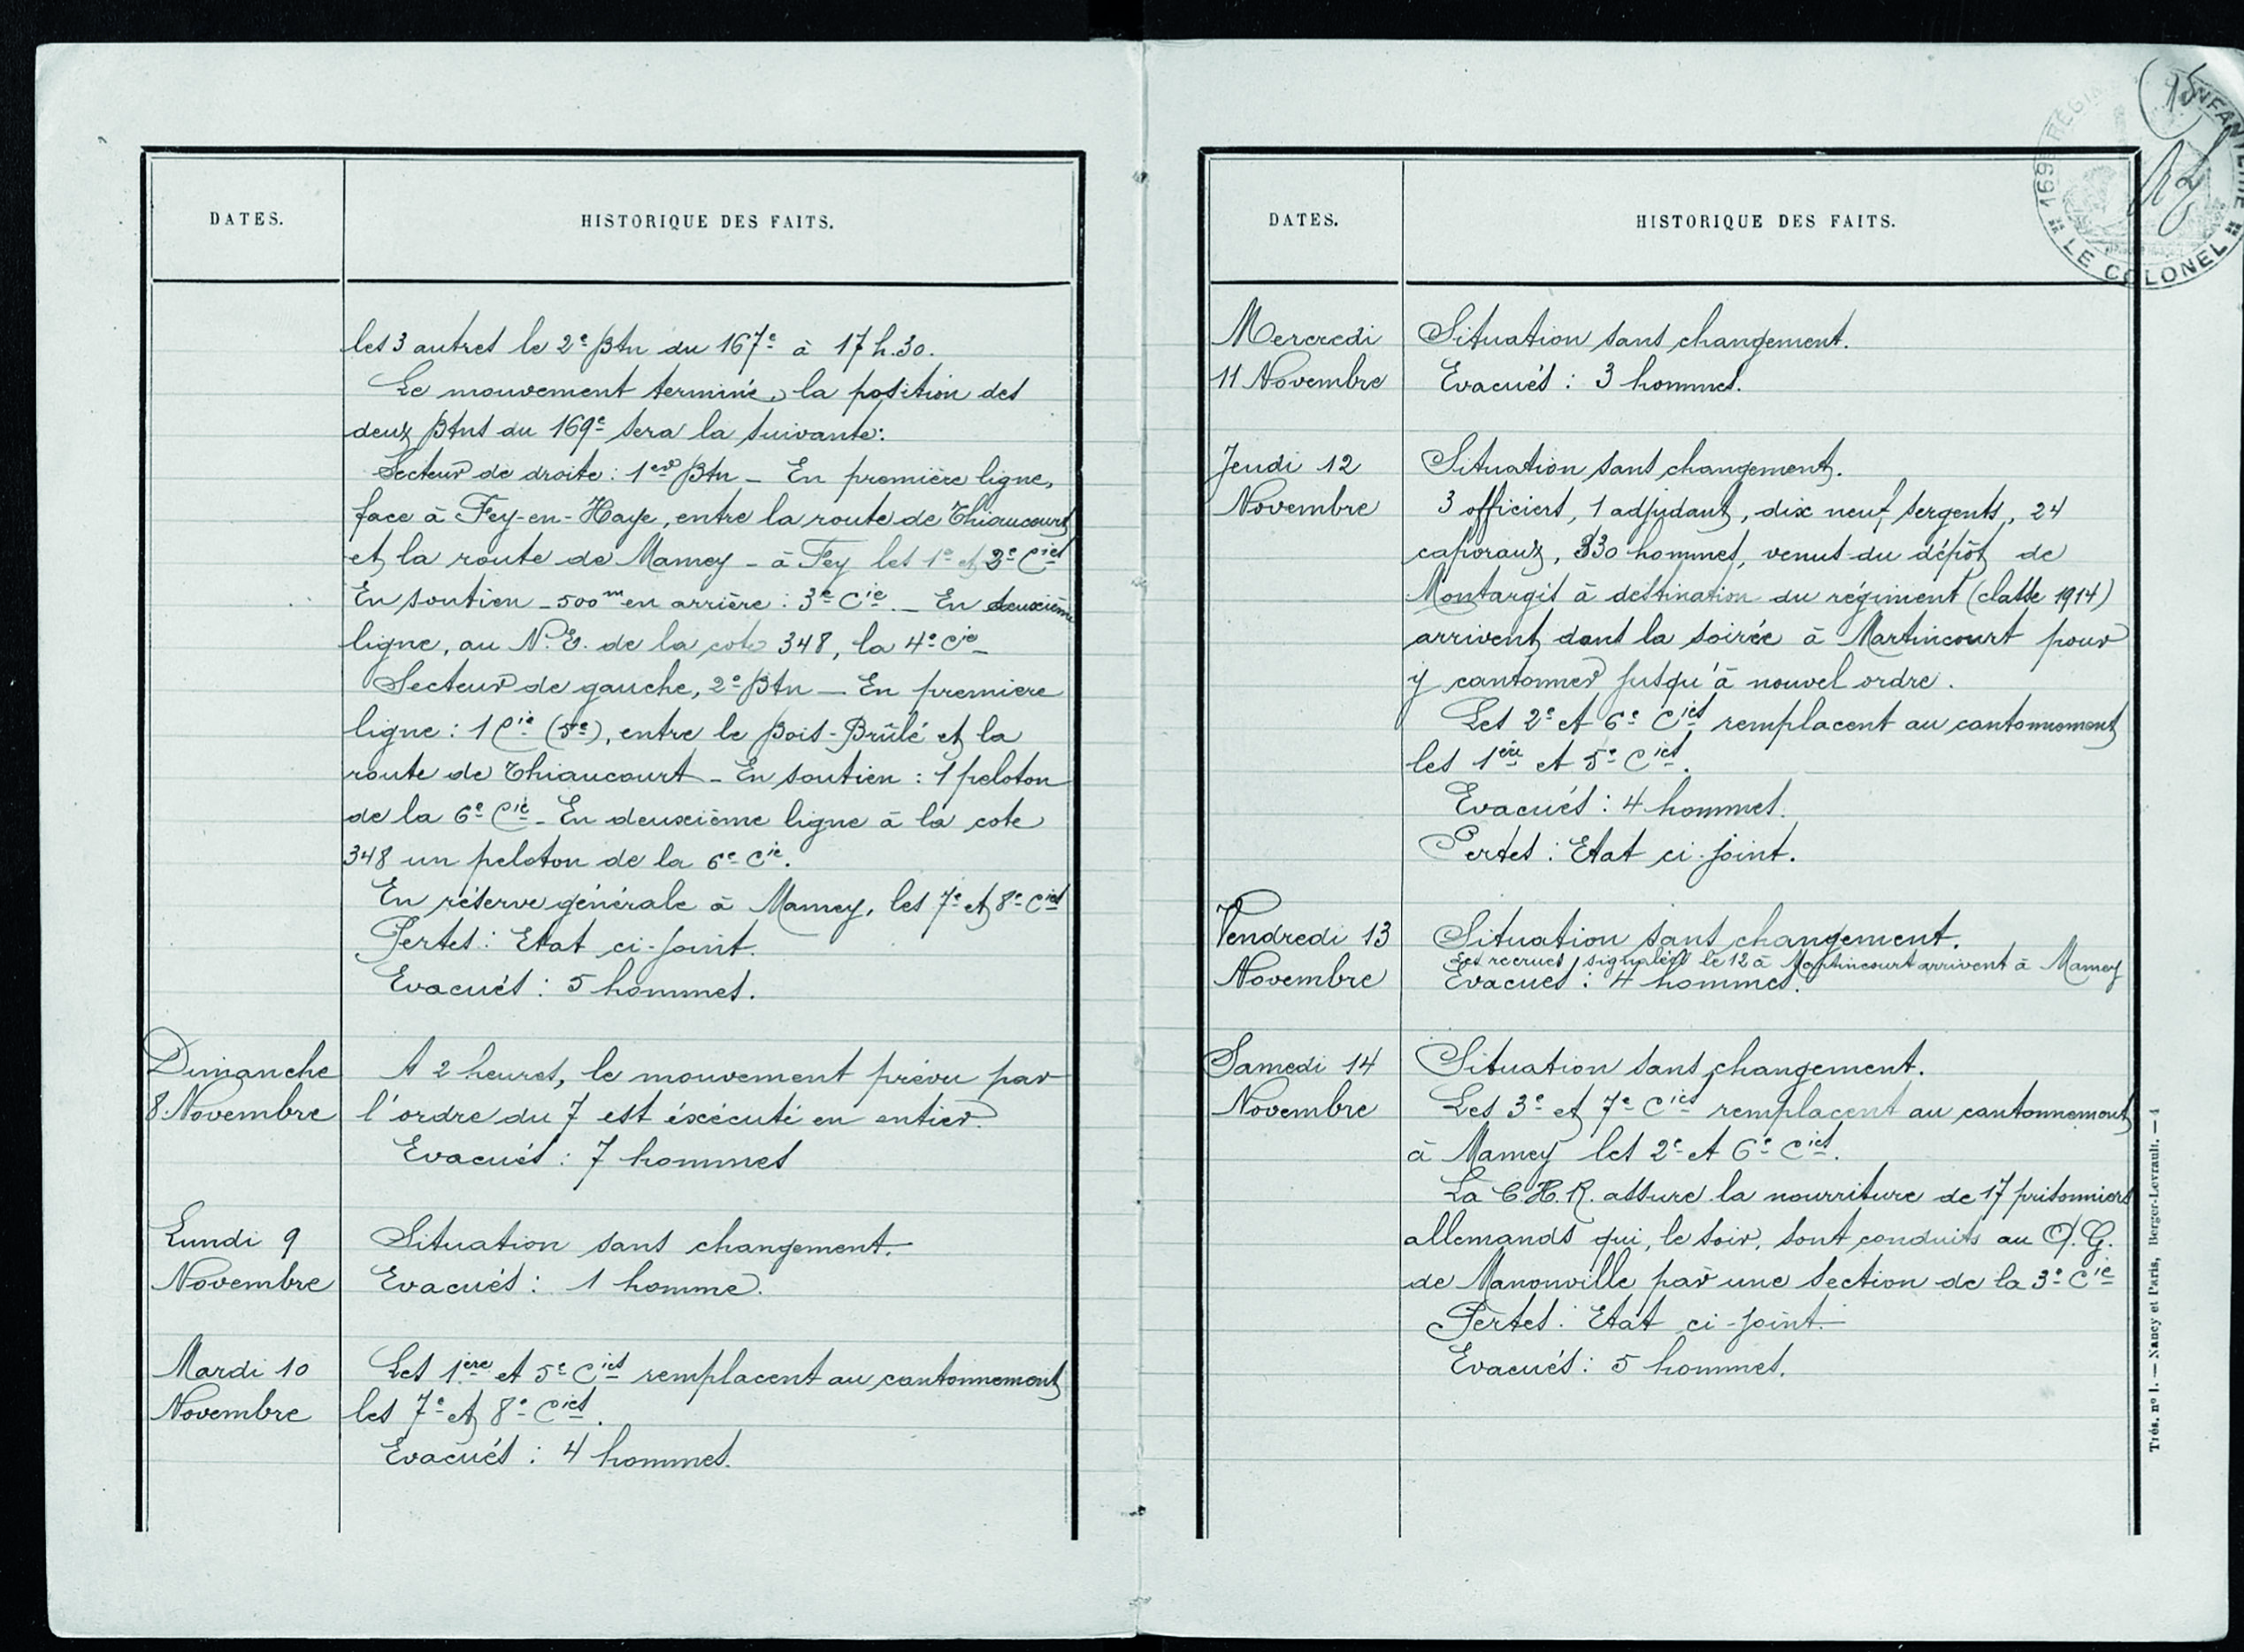 DATES.
HISTORIQUE DES FAITS.
les 3 autres le 2e Btn du 167e à 17 h.30.
Le mouvement terminé, la position des
deux Btns du 169e sera la suivante:
Secteur de droite : 1er Btn - En première ligne,
face à Fey-en-Haye, entre la route de Thiaucourt
et la route de Mamey - à Fey les 1e et 2e Cies
En soutien - 500m en arrière : 3e Cie. - En deuxième
ligne, au N.E. de la cote 348, la 4e Cie -
Secteur de gauche, 2e Btn - En premiere
ligne : 1 Cie (5e), entre le Bois-Brûlé et la
route de Thiaucourt - En soutien : 1 peloton
de la 6e Cie - En deuxième ligne à la cote
348 un peloton de la 6e Cie.
En réserve générale à Mamey, les 7e et 8e Cies
Pertes : Etat ci-joint.
Evacués : 5 hommes.
Dimanche
8 Novembre
A 2 heures, le mouvement prévu par
l'ordre du 7 est éxécuté en entier.
Evacués : 7 hommes
Lundi 9
Novembre
Situation sans changement.
Evacués : 1 homme.
Mardi 10
Novembre
Les 1ère et 5e Cies remplacent au cantonnement
les 7e et 8e Cies.
Evacués : 4 hommes.
DATES.
HISTORIQUE DES FAITS.
169e REGIM INFANTERIE
LE COLONEL
Mercredi
11 Novembre
Situation sans changement.
Evacués : 3 hommes.
Jeudi 12
Novembre
Situation sans changement.
3 officiers, 1 adjudant, dix neuf sergents, 24
caporaux, 330 hommes, venus du dépôt de
Montargis à destination du régiment (classe 1914)
arrivent dans la soirée à Martincourt pour
y cantonner jusqu'à nouvel ordre.
Les 2e et 6e Cies remplacent au cantonnement
les 1ère et 5e Cies.
Evacués : 4 hommes.
Pertes : Etat ci-joint.
Vendredi 13
Novembre
Situation sans changement.
Les recrues signalées le 12 à Martincourt arrivent à Mamey
Evacués : 4 hommes.
Samedi 14
Novembre
Situation sans changement.
Les 3e et 7e Cies remplacent au cantonnement
à Mamey les 2e et 6e Cies.
La C.H.R. assure la nourriture de 17 prisonniers
allemands qui, le soir, sont conduits au Q.G.
de Manonville par une section de la 3e Cie
Pertes : Etat ci-joint.
Evacués : 5 hommes.
Trés. n° 1. — Nancy et Paris, Berger-Levrault. — 4